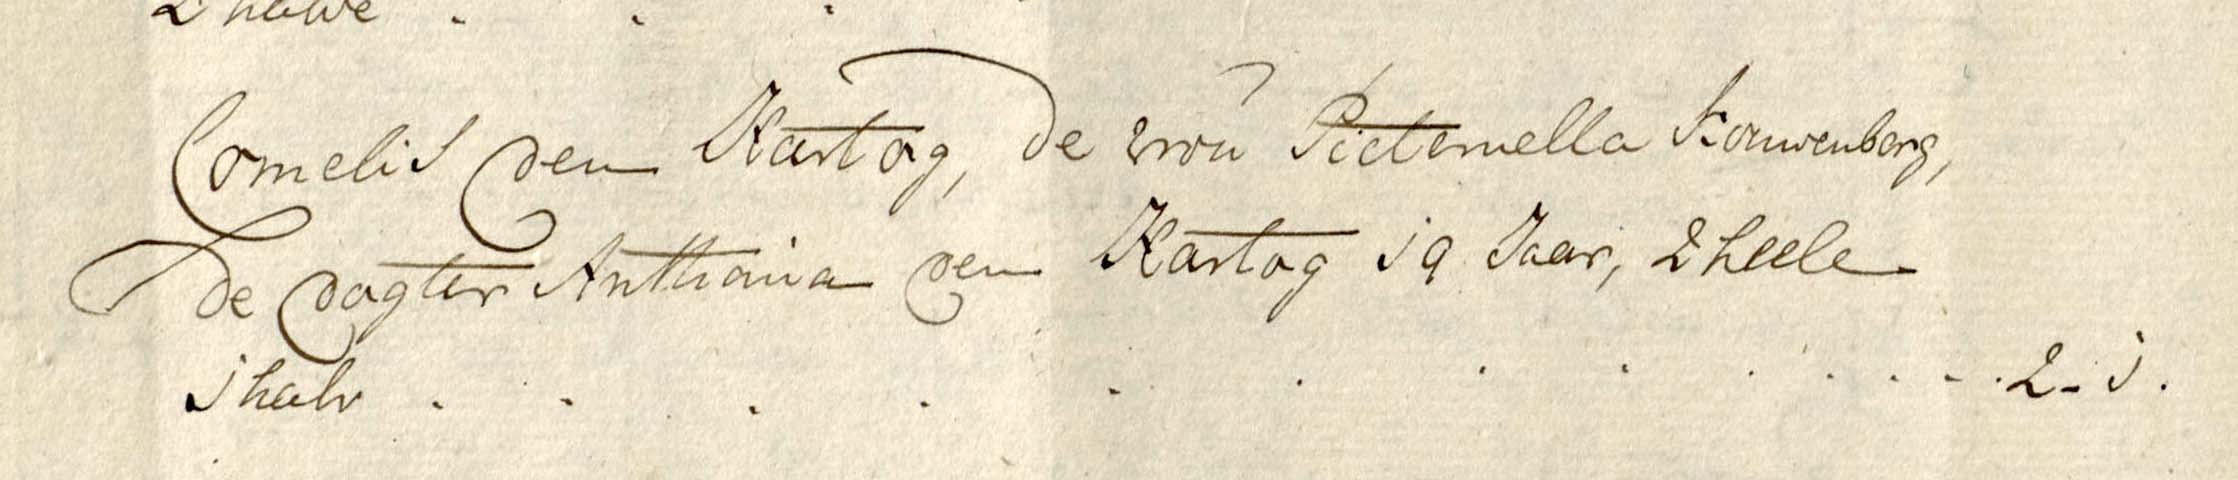 2 halve . . .
Cornelis den Hartog, De vroú Pieternella Kouwenberg,
De dogter Anthonia den Hartog 19 Jaar, 2 heele
1 halv . . . . . . . . . . . . . 2 - 1 .